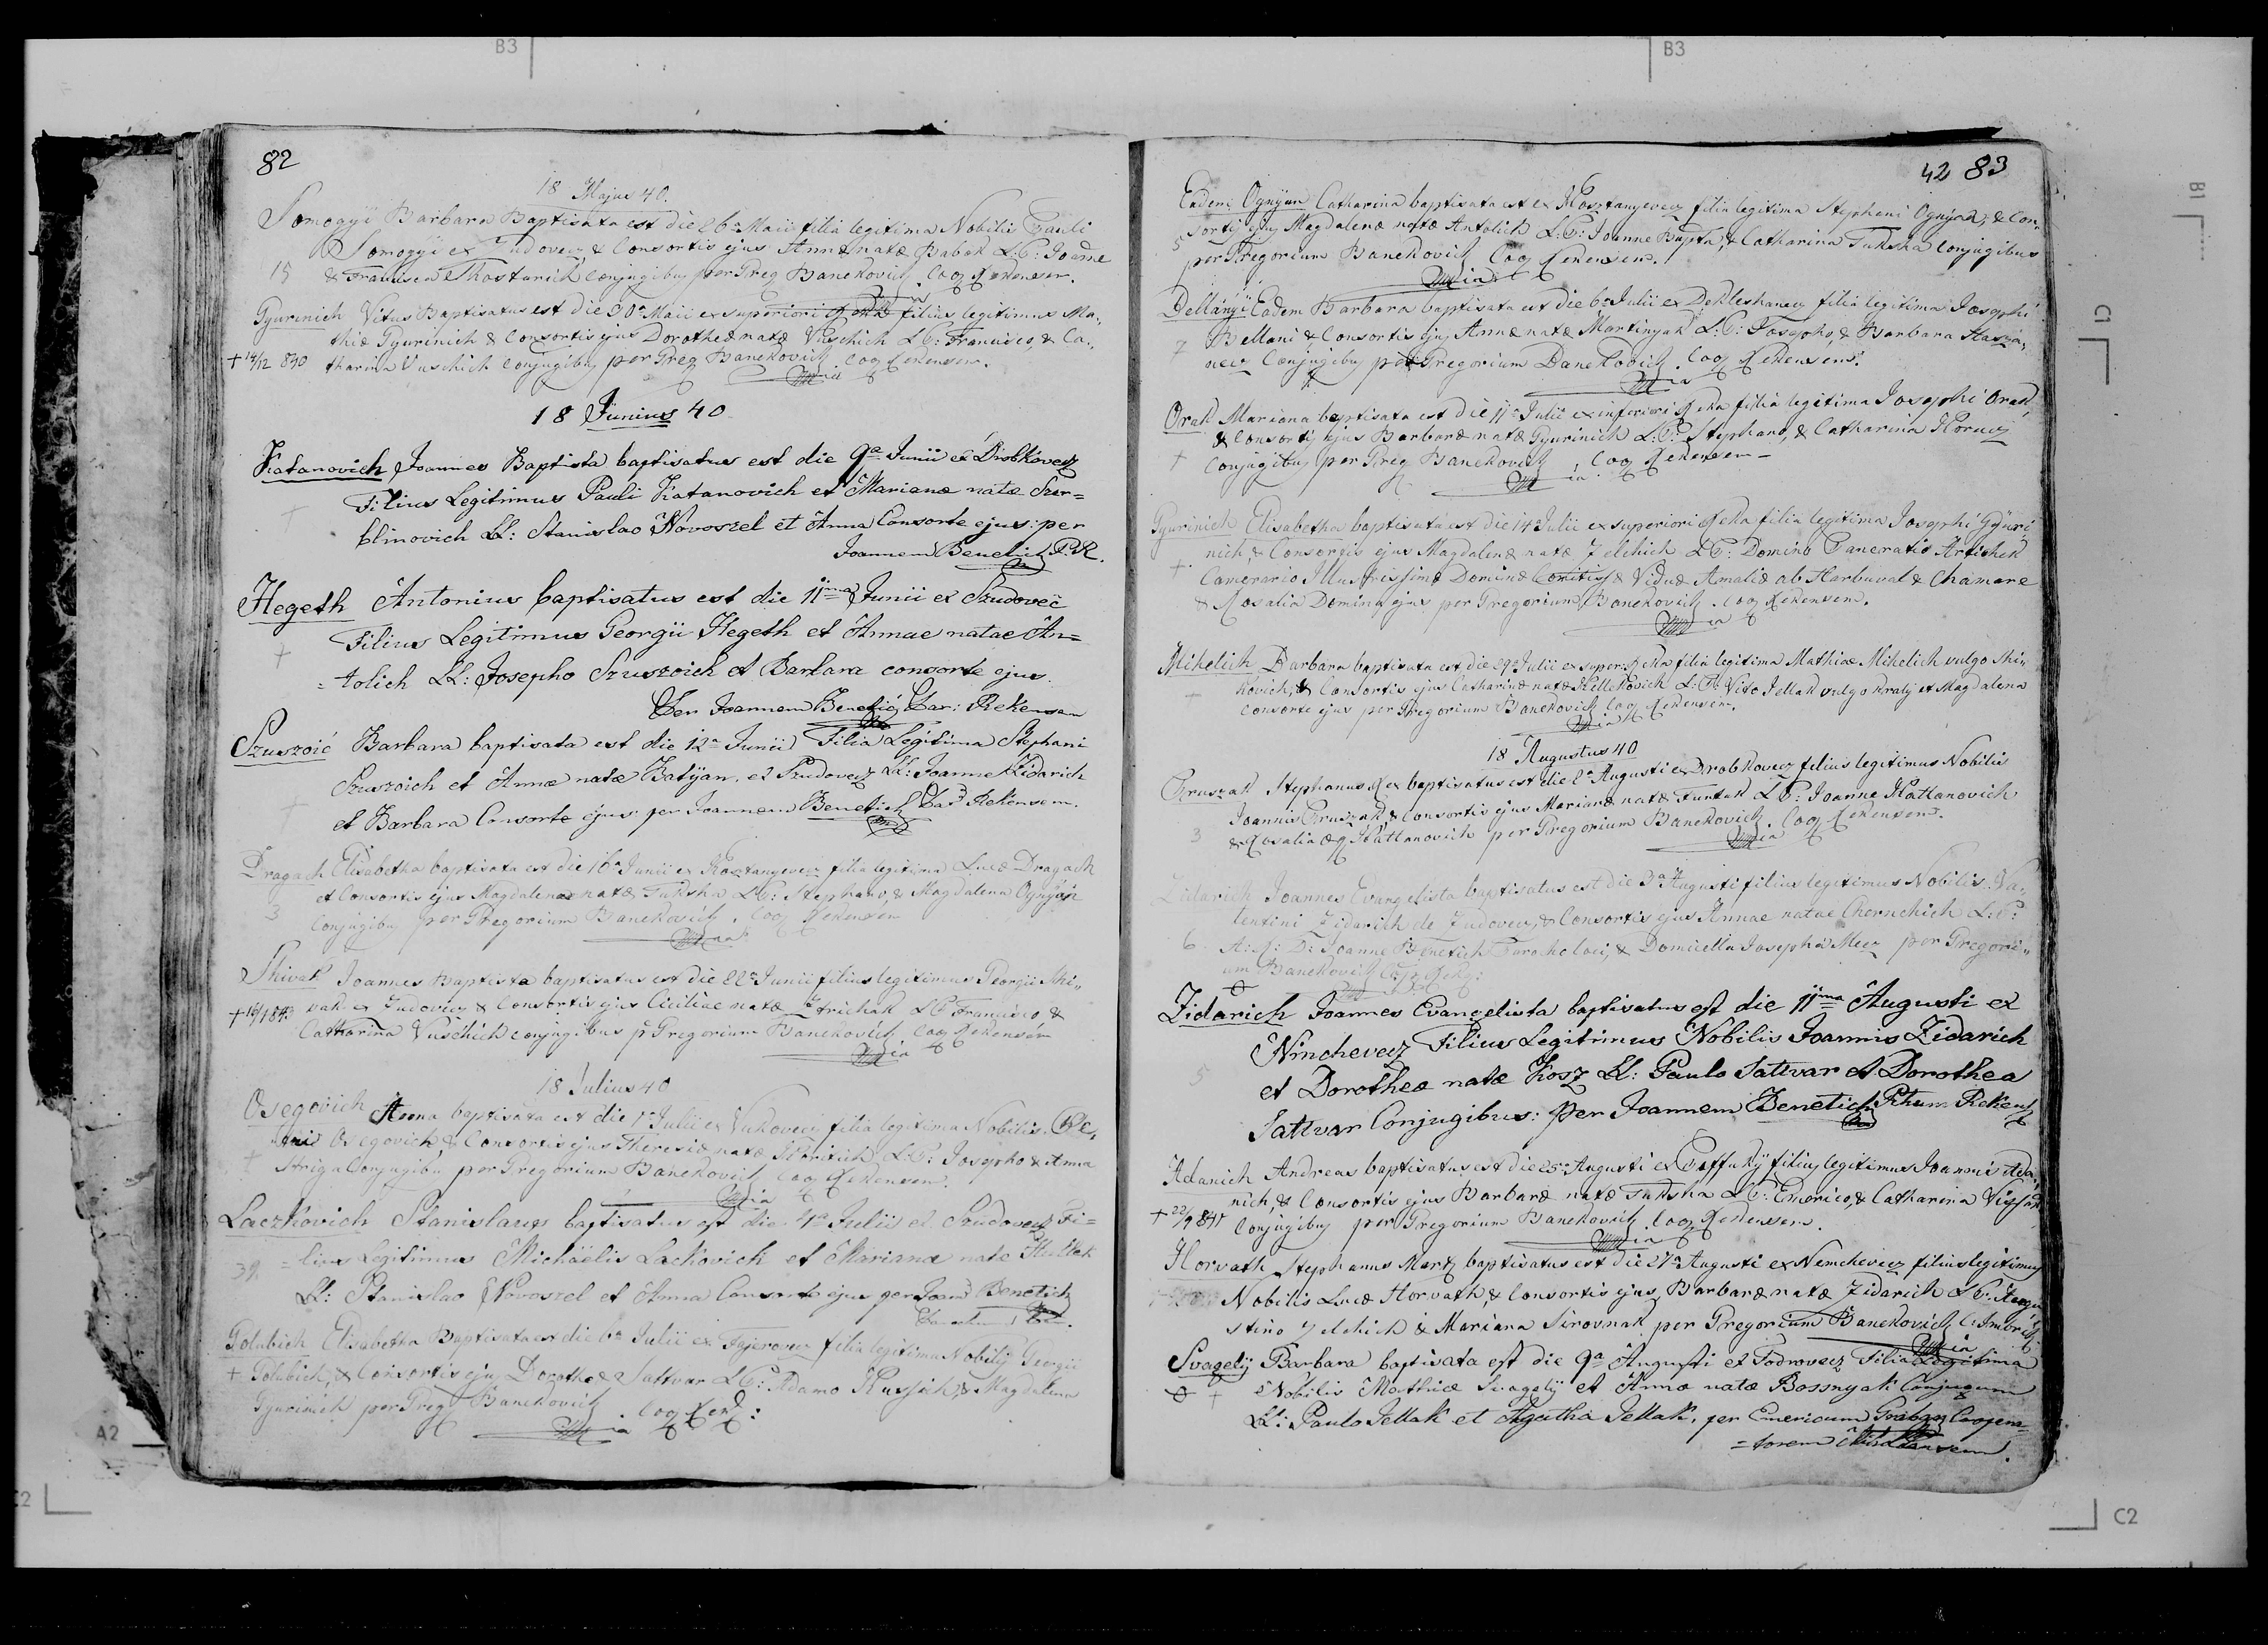 82
18 Majus 40.
Somogyi Barbara Baptisata est die 26a Maii filia legitima Nobilis Pauli
Somogyi ex Zudovecz, & Consortis ejus Annæ natæ Babok L:P: Joanne
15 & Francisca conjugibus per Greg Banekovich. Coop Rekensem.
Gyurinich Vitus Baptisatus est die 30a Maii ex superiori Reka filius legitimus Ma,,
thiæ Gyurinich & Consortis ejus Dorotheæ natæ Vuschich L:P: Francisco, & Ca,,
+ 14/12 840 tharina Vuschich conjugibus per Greg Banekovich Coop Rekensem.
18 Junius 40
Katanovich Joannes Baptista baptisatus est die 9a Junii ex Drobkovecz
Filius Legitimus Pauli Katanovich et Marianæ natæ Szer=
blinovich LL: Stanislao Novoszel et Anna Consorte ejus: per
Joannem Benetich P.R.
Hegeth Antonius baptisatus est die 11ma Junii ex Szudovec
Filius Legitimus Georgii Hegeth et Annae natae An=
+ =tolich LL: Josepho Szuszoich et Barbara consorte ejus.
Per Joannem Benetich Par: Rekensem
Szuszoić Barbara baptisata est die 12a Junii Filia Legitima Stephani
Szuszoich et Annæ natæ Batÿan. ex Szudovecz LL: Joanne Zidarich
+ et Barbara Consorte ejus: per Joannem Benetich Par Rekensem.
Dragach Elisabetha baptisata est die 16a Junii ex Kosztanyevecz filia legitima Lucæ Dragach
et Consortis ejus Magdalenæ natæ Tuksha L:P: Stephano, & Magdalena Ognyan
3 Conjugibus per Gregorium Banekovich. Coop Rekensem
Shivak Joannes Baptista baptisatus est die 22a Junii filius legitimus Georgii Shi,,
+ 14/1 843 vak ex Zudovecz & Consortis ejus Ciciliae natæ L:P: Francisco &
Catharina Vuschich conjugibus p Gregorium Banekovich Coop Rekensem
18 Julius 40
Osegovich Anna baptisata est die 1a Julii ex Vukovecz filia legitima Nobilis
Osegovich, & Consortis ejus Theresiæ natæ L:P: Josepho & Anna
+ Striga Conjugibus per Gregorium Banekovich Coop Rekensem.
Laczkovich Stanislaus baptisatus est die 4a Julii ex Szudovecz Fi=
39. =lius Legitimus Michaëlis Lackovich et Marianæ natæ
LL: Stanislao Novoszel et Anna Consorte ejus per Joan Benetich
Golubich Elisabetha Baptisata est die 6a Julii ex filia legitima Nobilis Georgii
+ Golubich, & Consortis ejus Dorotheæ Sattvar L:P: Adamo & Magdalena
Gyurinich per Greg Banekovich. Coop Rek:
42 83
Eadem Ognyan Catharina baptisata est ex Kosztanyevecz filia legitima Stephani Ognyan, & Con,,
5 sortis ejus Magdalenæ natæ Antolich L:P: Joanne Bapta, & Catharina Tuksha Conjugibus
per Gregorium Banekovich Coop Rekensem.
Bellányi Eadem Barbara baptisata est die 6a Julii ex filia legitima Josephi
7 Bellani & Consortis ejus Annæ natæ Martinyak L:P: Josepho, & Barbara
necz Conjugibus per Gregorium Banekovich. Coop Rekensem.
Orak Mariana baptisata est die 11a Julii ex inferiori Reka filia legitima Josephi Orak,
& Consortis ejus Barbaræ natæ Gyurinich L:P: Stephano, & Catharina
+ Conjugibus per Greg Banekovich, Coop Rekensem
Gyurinich Elisabetha baptisata est die 14a Julii ex superiori Reka filia legitima Josephi Gyuri
nich, & Consortis ejus Magdalenæ natæ Zelchich L:P: Domino Pancratio Artichek
+ Camerario Illustrissimæ Dominæ Comitissæ Viduæ Amaliæ ab Harbuval & Chamare
& Rosalia Domina ejus per Gregorium Banekovich. Coop Rekensem.
Mihelich Barbara baptisata est die 29a Julii ex super: Reka filia legitima Mathiæ Mihelich vulgo Shi,,
+ kovich, & Consortis ejus Catharinæ natæ L:P: Vito Jellak vulgo Kraly et Magdalena
Consorte ejus per Gregorium Banekovich Coop Rekensem.
18 Augustus 40
Pruszak Stephanus Rex baptisatus est die 2a Augusti ex Drobkovecz filius legitimus Nobilis
Joannis Pruszak, & Consortis ejus Marianæ natæ Funtak L:P: Joanne Kattanovich
3 & Rosalia Kattanovich per Gregorium Banekovich. Coop Rekensem.
Zidarich Joannes Evangelista baptisatus est die 3a Augusti filius legitimus Nobilis Va,,
lentini Zidarich de Zudovecz, & Consortis ejus Annae natae Chernchich L:P:
6 A: R: D: Joanne Benetich Parocho loci, & Domicella Josepha Mecz per Gregori,,
um Banekovich Coop Rek:
Zidarich Joannes Evangelista baptisatus est die 11ma Augusti ex
Ninchevecz Filius Legitimus Nobilis Joannis Zidarich
5 et Dorotheæ natæ Kosz LL: Paulo Sattvar et Dorothea
Sattvar Conjugibus: per Joannem Benetich Rekens
Adanich Andreas baptisatus est die 25a Augusti ex filius legitimus Joannis Ada,,
nich, & Consortis ejus Barbaræ natæ Tuksha L:P: Emerico, & Catharina
+ 22/9 841 Conjugibus per Gregorium Banekovich Coop Rekensem.
Horvath Stephanus baptisatus est die 27a Augusti ex Nemchevecz filius legitimus
Nobilis Lucæ Horvath, & Consortis ejus Barbaræ natæ Zidarich L:P: Augu
stino Zelchich & Mariana Sirovnak per Gregorium Banekovich
Svagelÿ Barbara baptisata est die 9a Augusti ex Podrovecz Filia Legitima
+ Nobilis Mathiæ Svagelÿ et Annæ natæ Bossnyak Conjugum
LL: Paulo Jellak et Agatha Jellak, per Emericum Coopera=
=torem
B3
B3
B1
C1
A2
C2